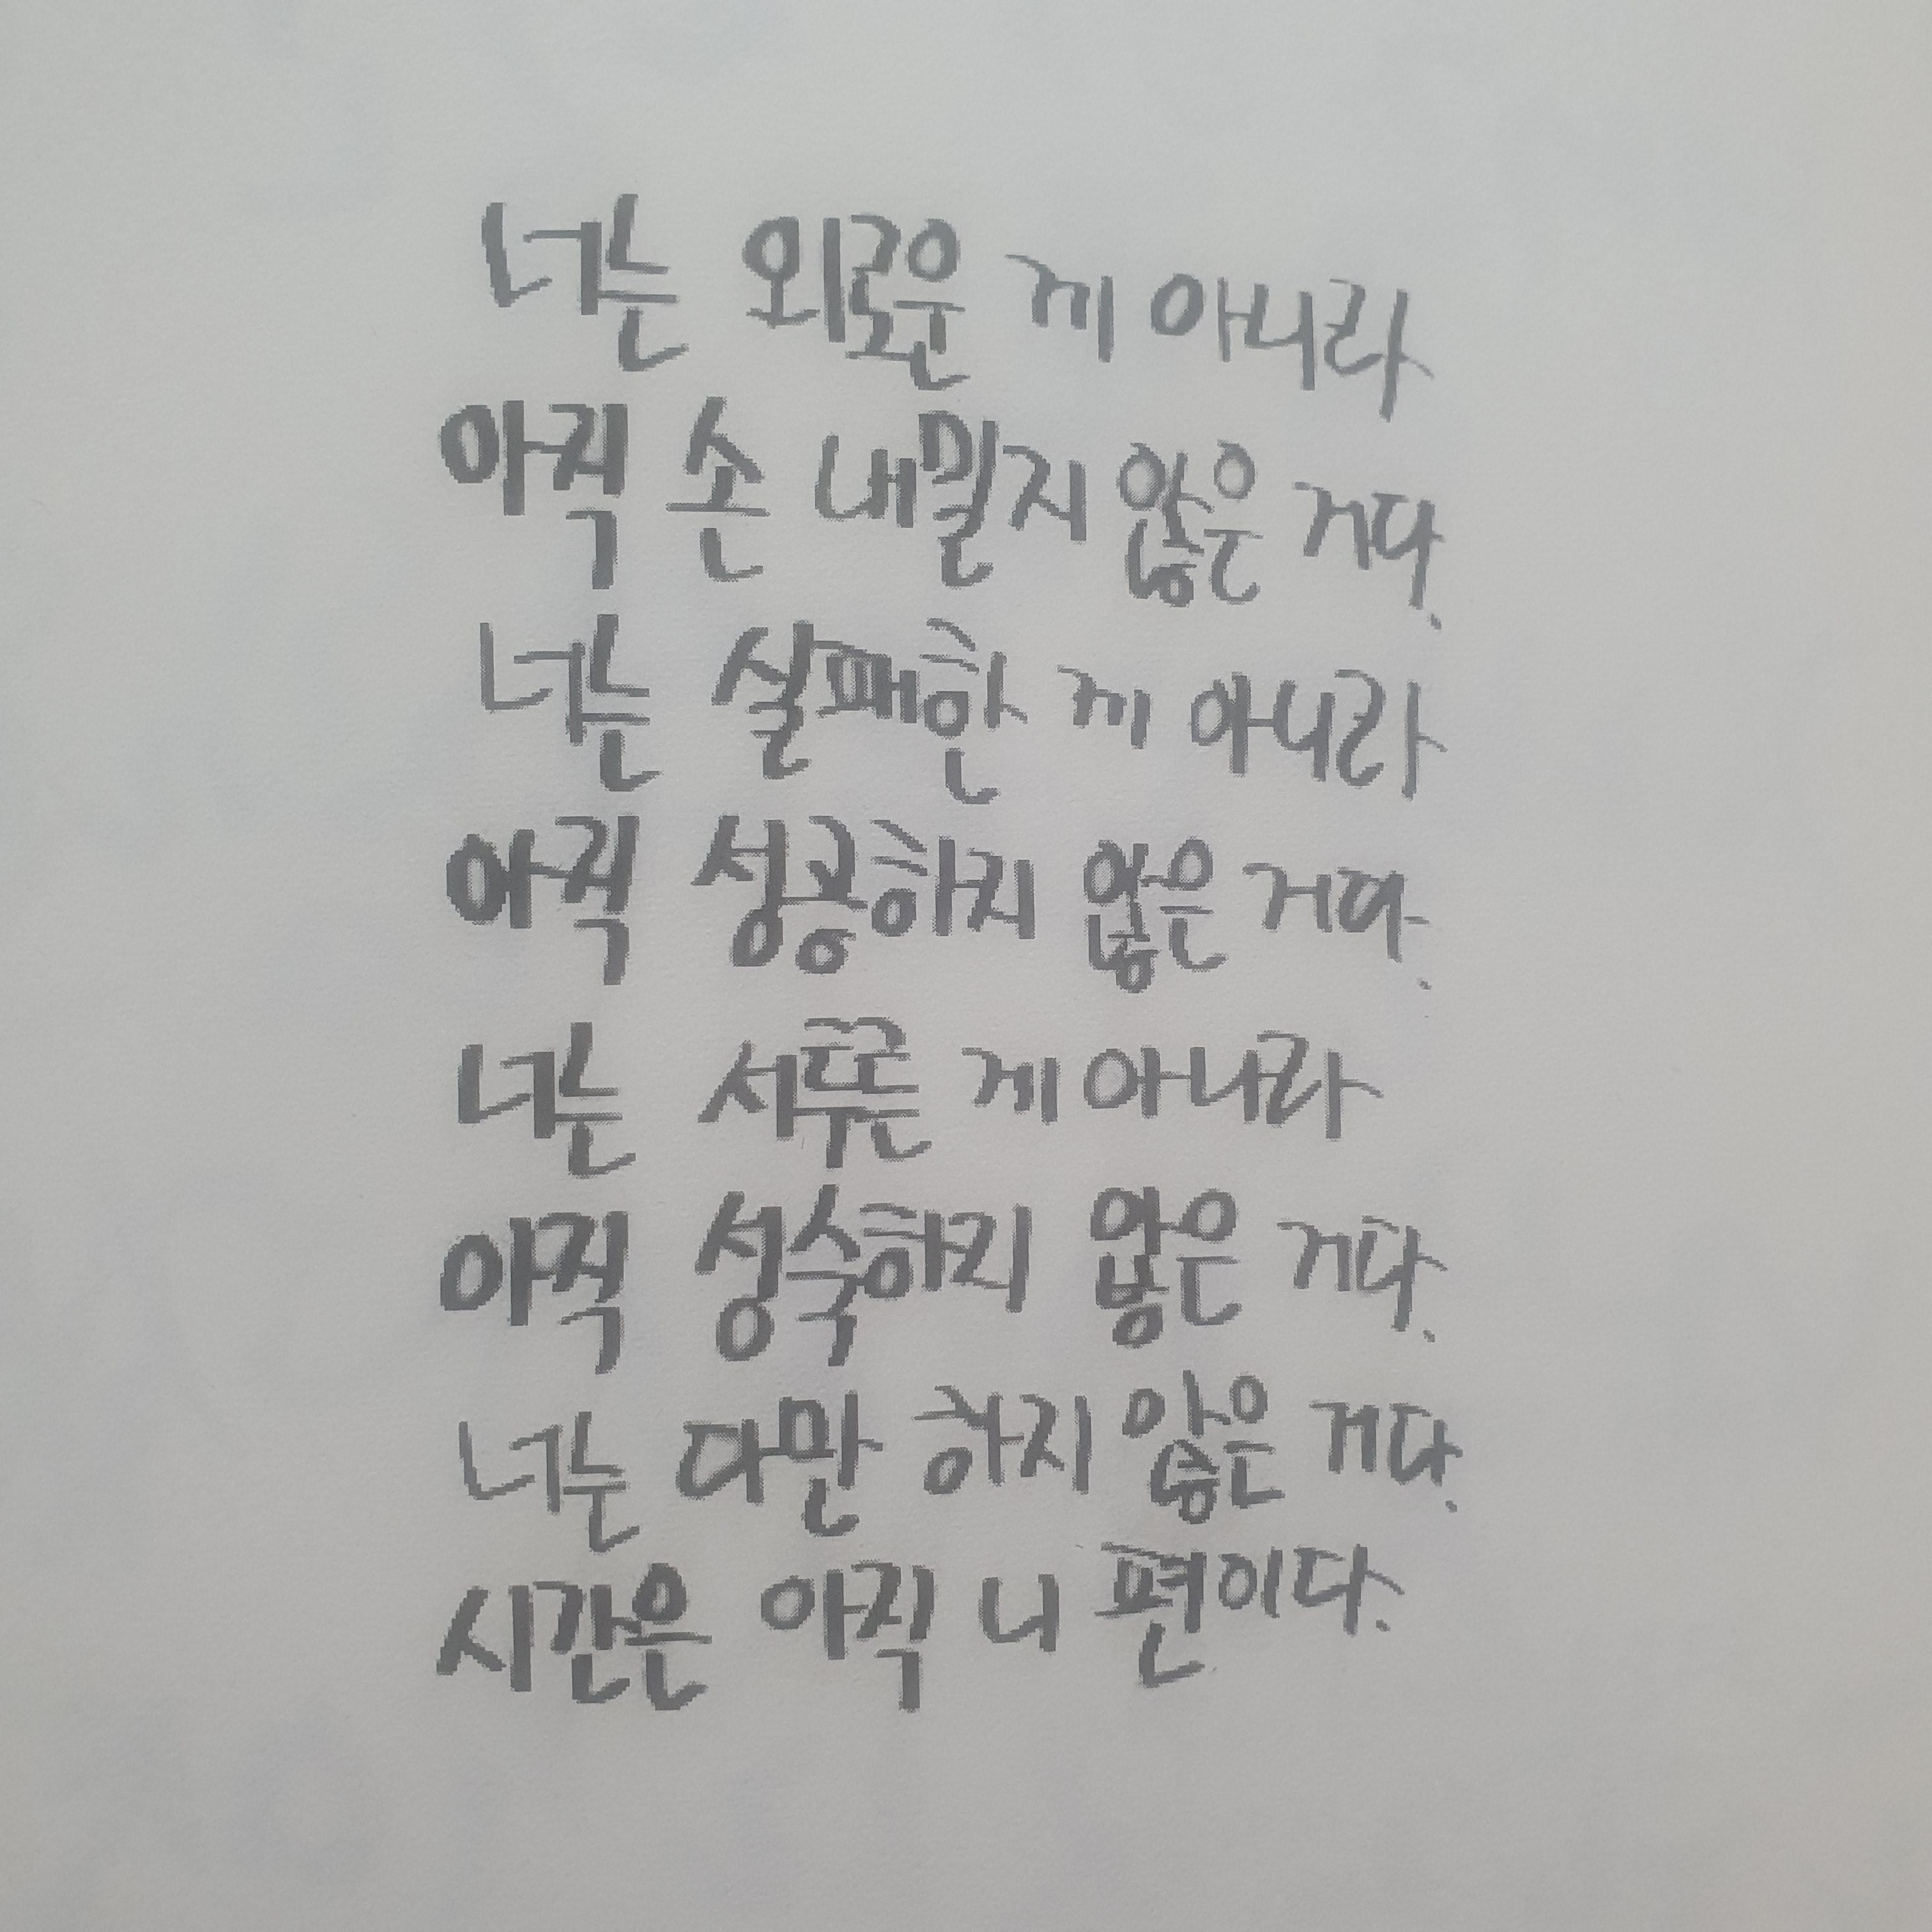 너는 외로운 게 아니라
아직 손 내밀지 않은 거다.
너는 실패한 게 아니라
아직 성공하지 않은 거다.
너는 서투른 게 아니라
아직 성숙하지 않은 거다.
너는 다만 하지 않은 거다.
시간은 아직 니 편이다.